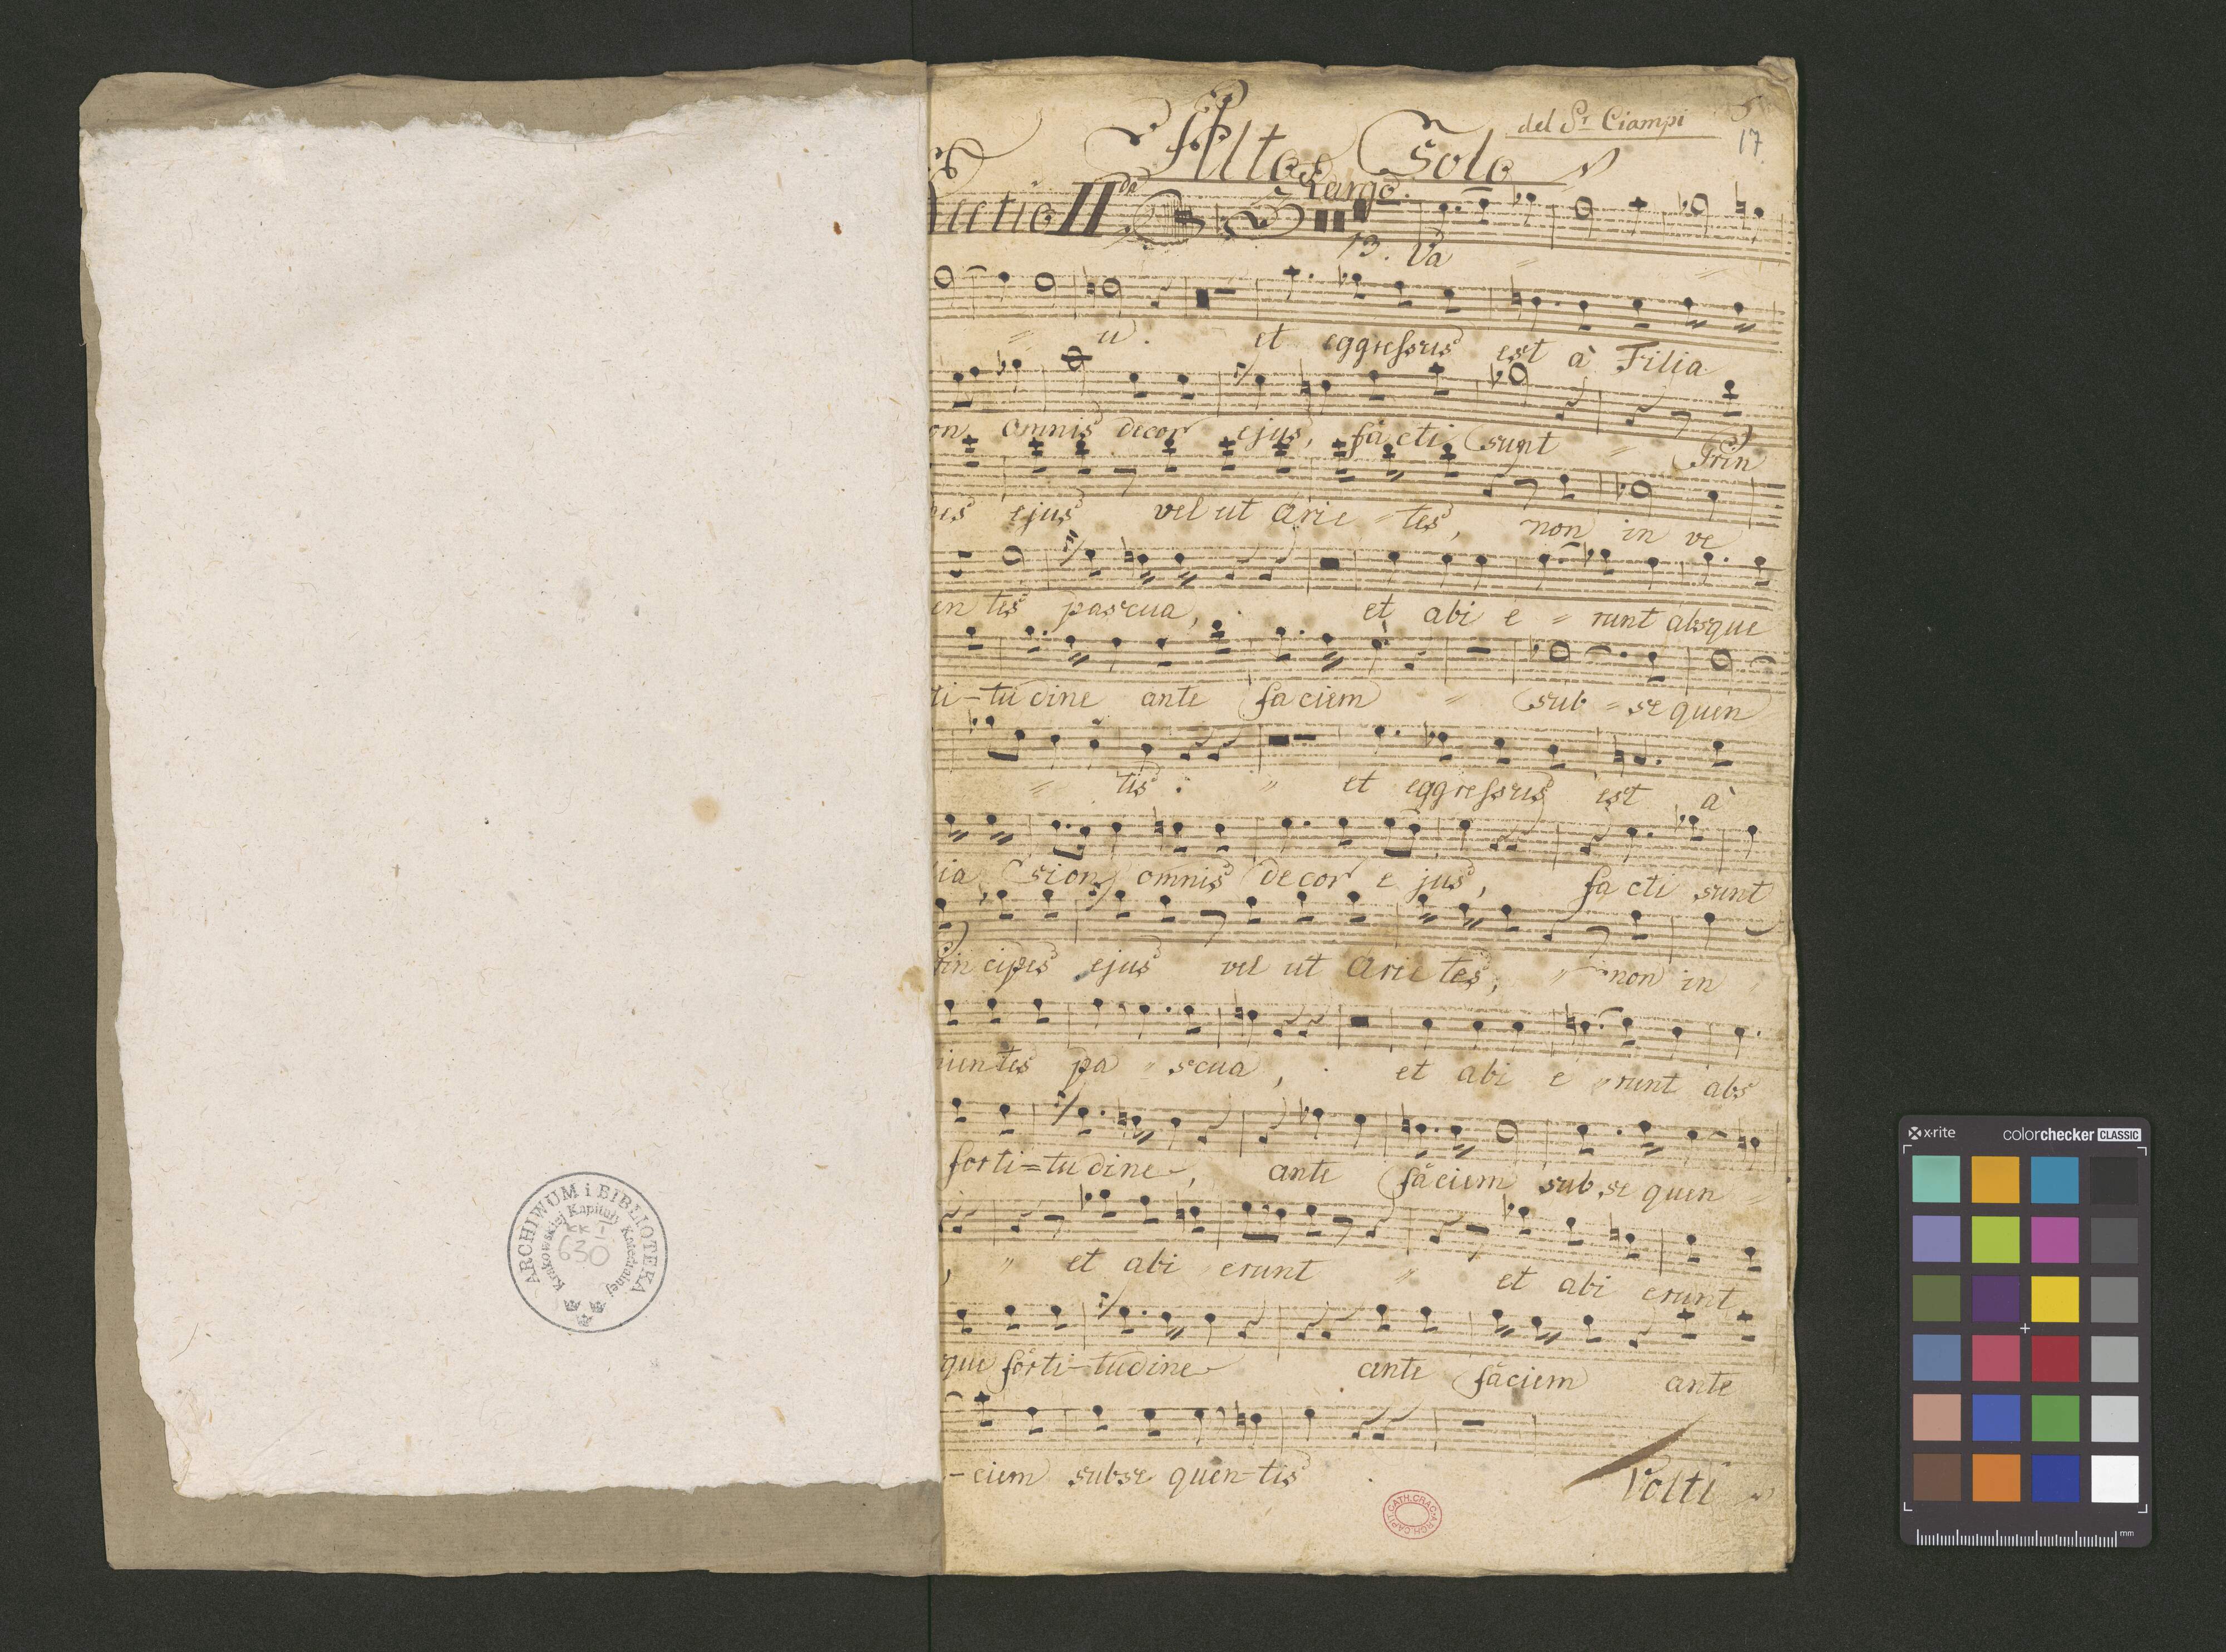 5
del Sr. Ciampi
17
Alto Solo
Largo.
Lectio IIda
13. Va
u. et eggressus est à Filia
on omnis decor ejus, facti sunt Prin
pes ejus vel ut Arie-tes, non in ve
en tes pascua, et abi e = runt absque
ti-tudine ante faciem sub = se quen
tis: et eggressus est à
ia Sion omnis decor e jus, facti sunt
rin cipes ejus vel ut Arie tes, non in
nien tes pa = scua, et abi e runt abs
forti=tudine, ante faciem sub se quen
, et abi erunt et abi erunt
que forti-tudine ante faciem ante
-ciem subse quen-tis
Volti
ARCHIWUM i BIBLIOTEKA
Krakowskiej Kapituły Katedralnej
KK I
630
CATH.CRAC.
ARCH.CAPIT.
x-rite colorchecker CLASSIC
mm